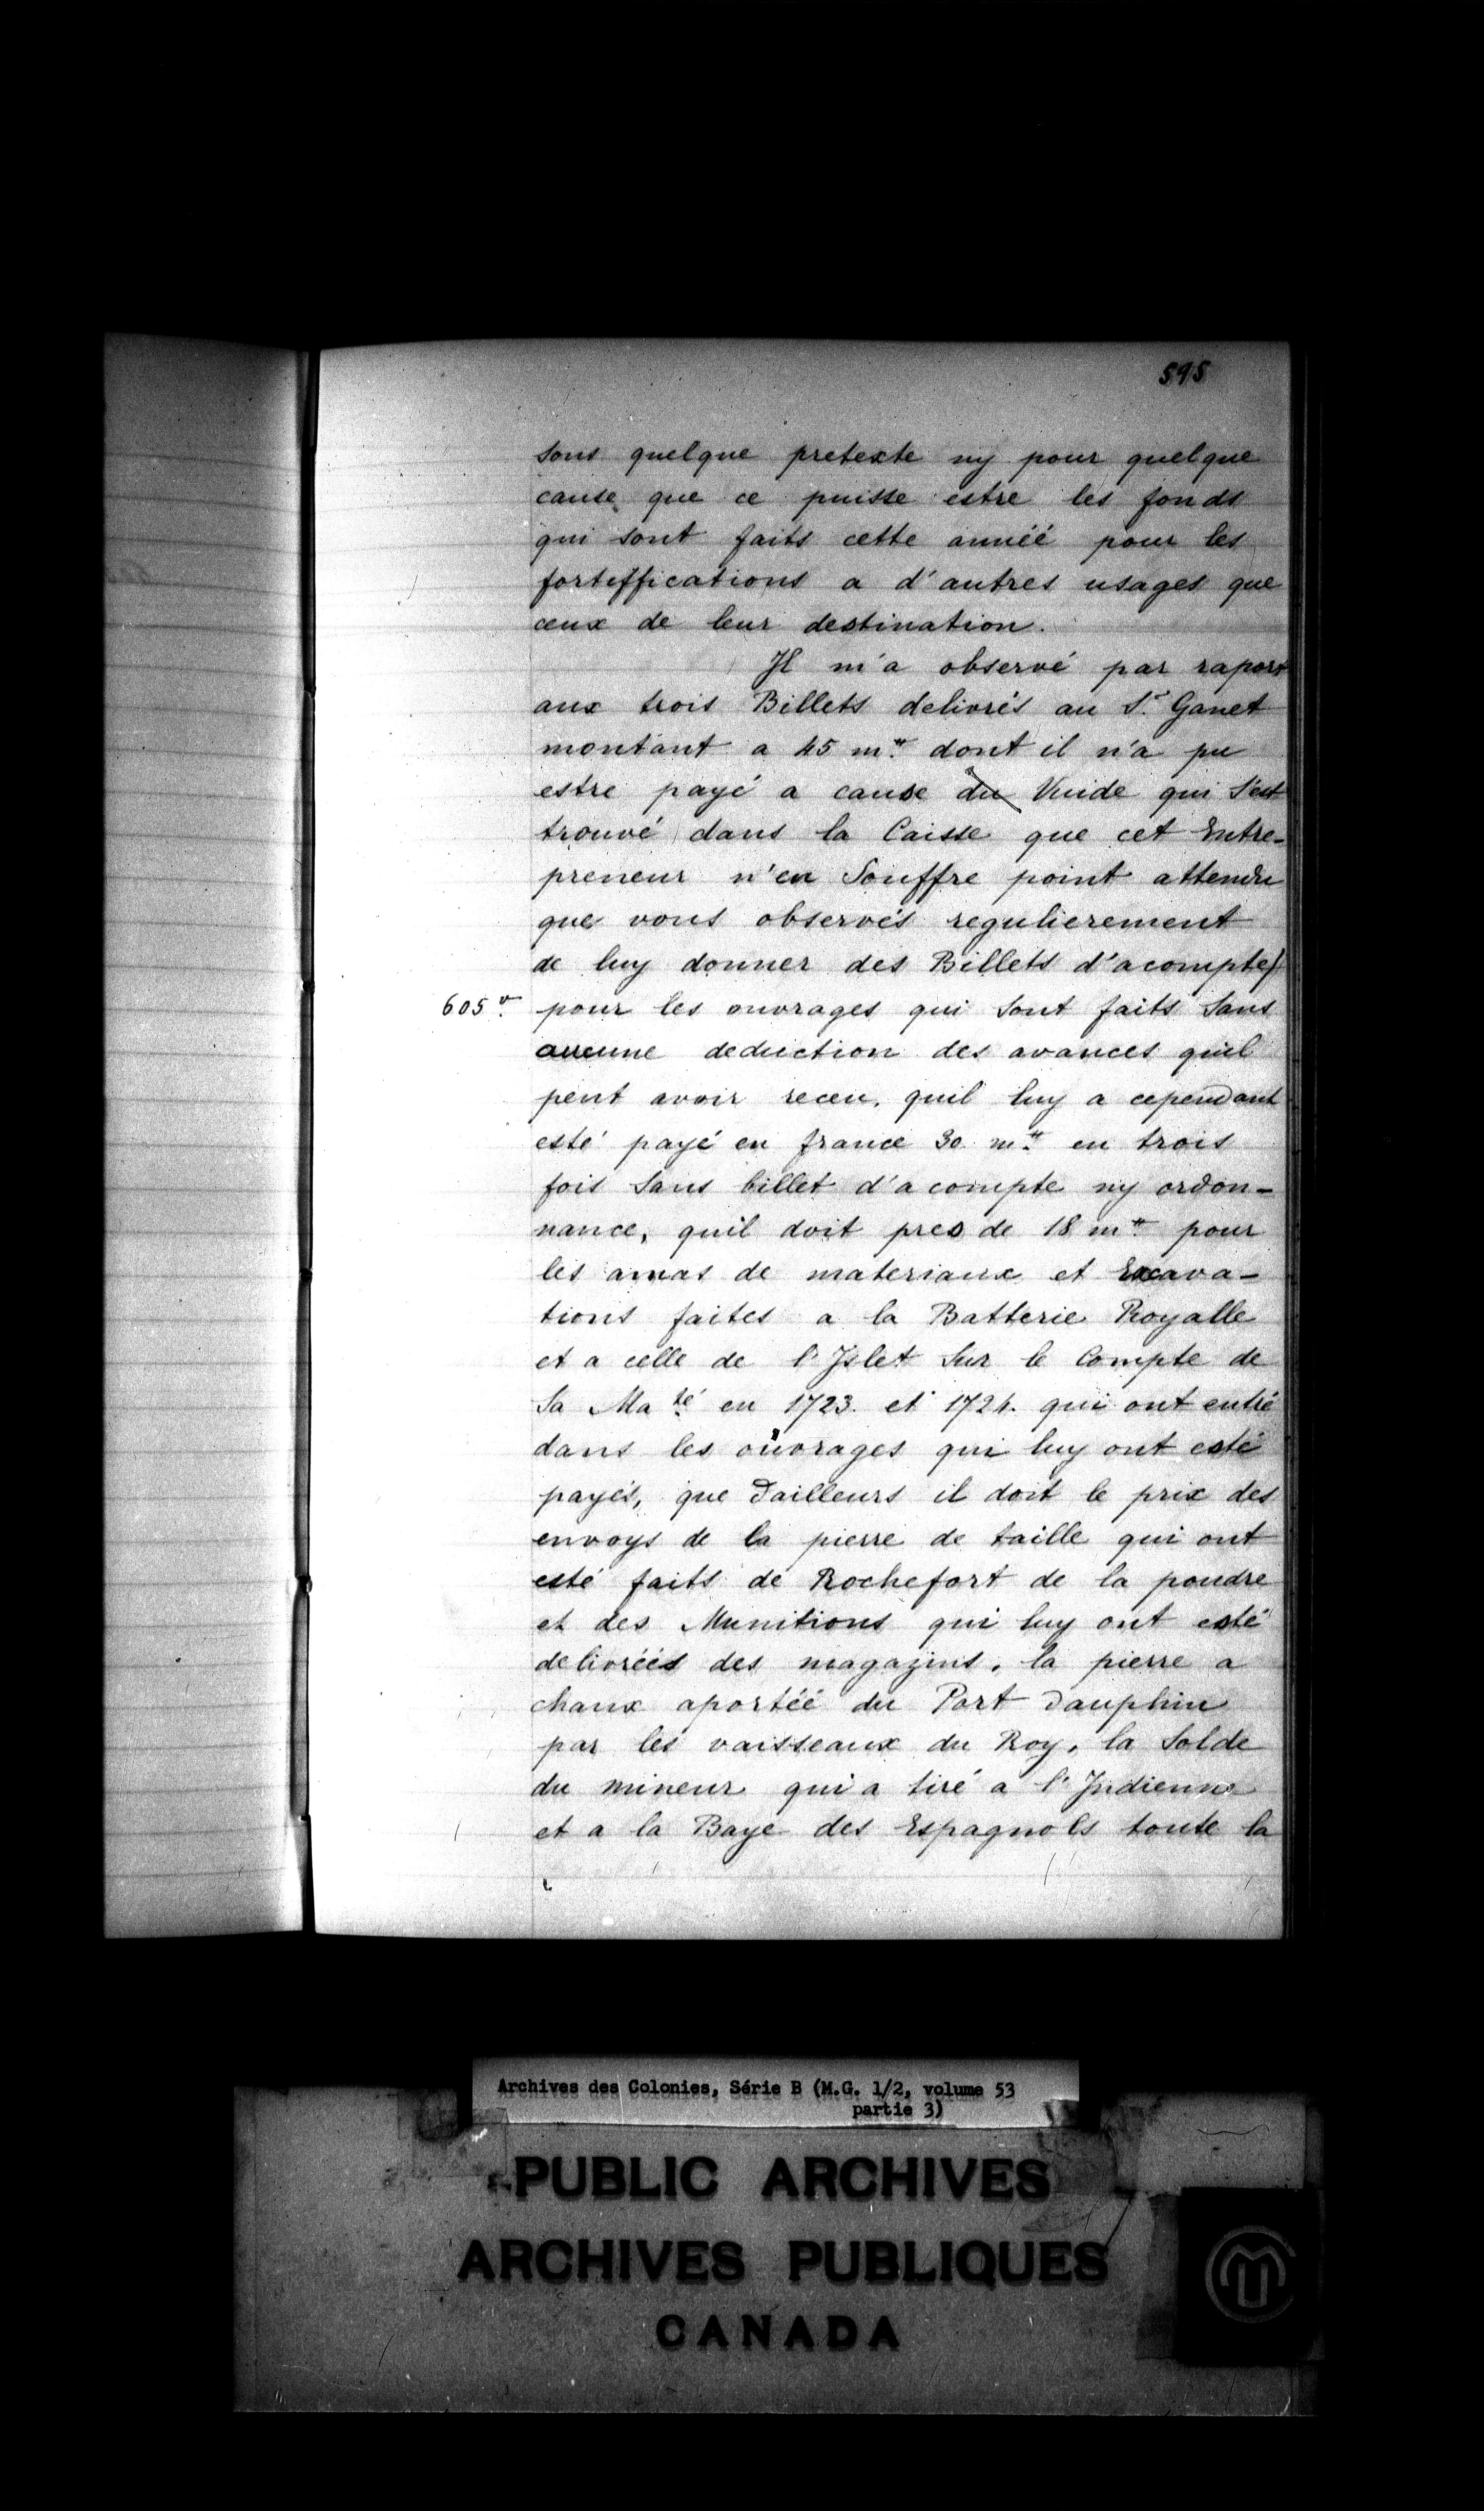 595
sous quelque pretexte ny pour quelque
cause que ce puisse estre les fonds
qui sont faits cette annéé pour les
fortiffications a d'autres usages que
ceux de leur destination.
Il m'a observé par raport
aux trois Billets delivrés au S.r Ganet
montant a 45 m.tt dont il n'a pu
estre payé a cause du Vuide qui s'est
trouvé dans la Caisse que cet Entre-
preneur n'en Souffre point attendu
que vous observés regulierement
de luy donner des Billets d'acompte)
605 v.
pour les ouvrages qui sont faits sans
aucune deduction des avances quil
peut avoir receu, quil luy a cependant
esté payé en france 30 m.tt en trois
fois sans billet d'acompte ny ordon-
nance, quil doit pres de 18 m.tt pour
les amas de materiaux et Excava-
tions faites a la Batterie Royalle
et a celle de l'Jslet sur le Compte de
Sa Ma.té en 1723. et 1724. qui ont entré
dans les ouvrages qui luy ont esté
payés, que dailleurs il doit le prix des
envoys de la pierre de taille qui ont
esté faits de Rochefort de la poudre
et des Munitions qui luy ont esté
delivréés des magazins, la pierre a
chaux aportéé du Port Dauphin
par les vaisseaux du Roy, la Solde
du mineur qui a tiré a l'Jndienne
et a la Baye des Espagnols toute la
Archives des Colonies, Série B (M.G. 1/2, volume 53
partie 3)
PUBLIC ARCHIVES
ARCHIVES PUBLIQUES
CANADA